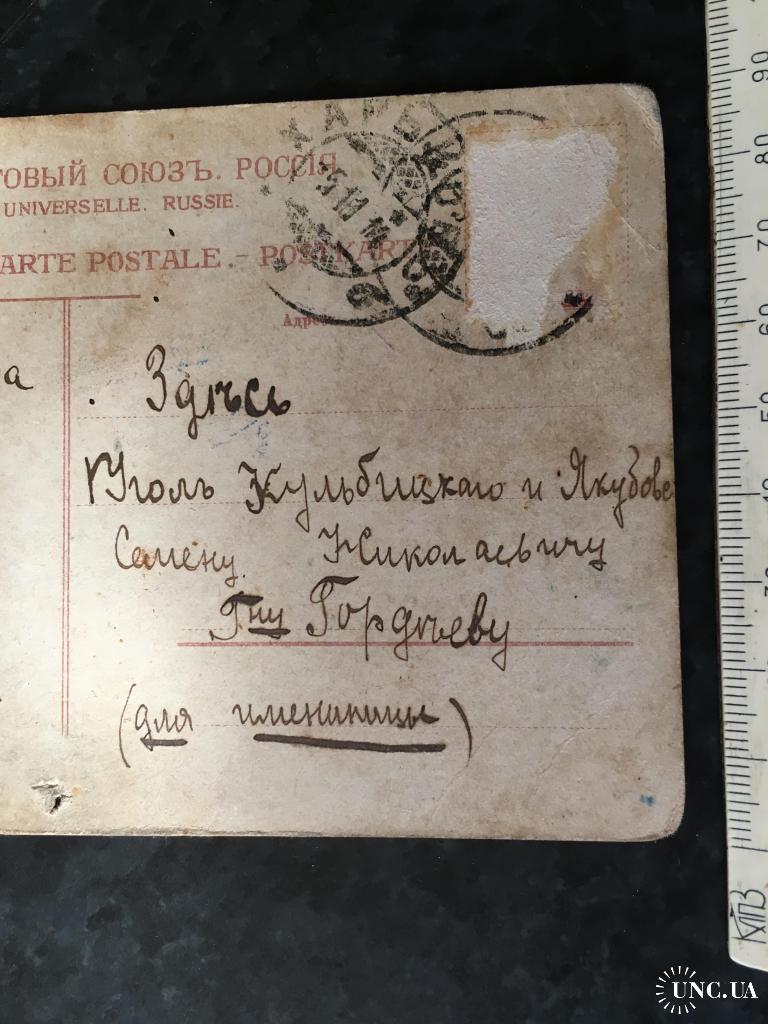 ТОВЫЙ СОЮЗЪ. РОССІЯ
UNIVERSELLE. RUSSIE.
ARTE POSTALE.- POSTKARTE
Адре
а
Здѣсь
Уголъ Кульбицкаго и Якубовс
Семену Николаевичу
Гну Гордѣеву
(для именинницы)
90
80
70
60
50
40
30
КПВ
UNC.UA